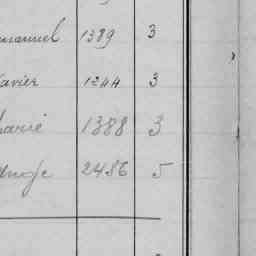 manuel 1389 3
avier 1244 3
arie 1388 3
2486 5